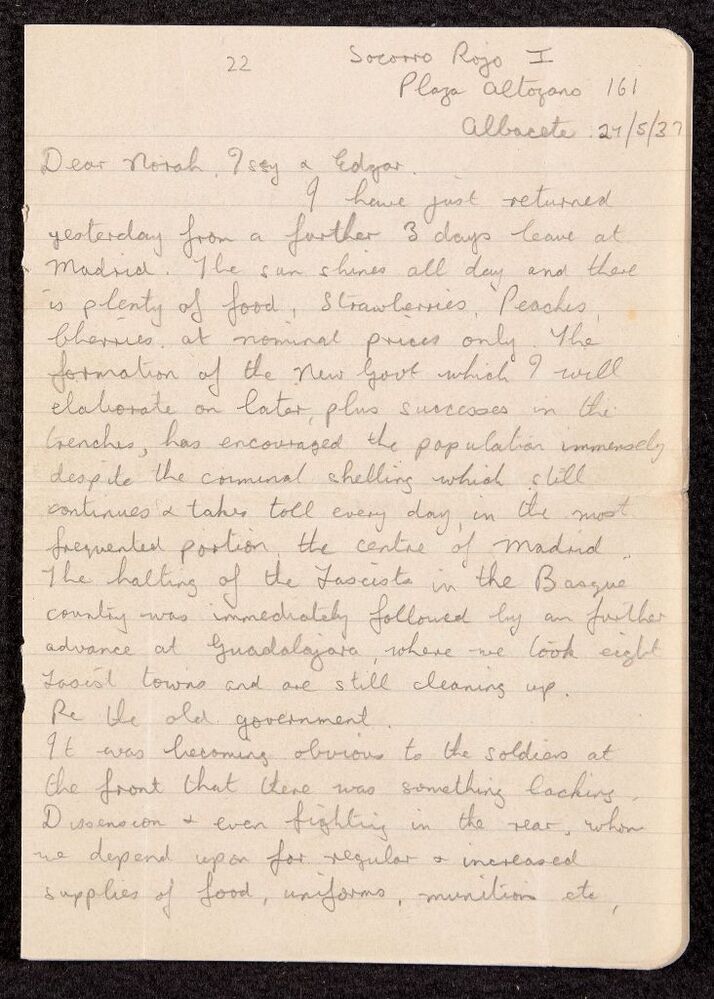 22
Socorro Rojo I
Plaza Altozano 161
Albacete 27/5/37
Dear Norah, Issy & Edgar.
I have just returned
yesterday from a further 3 days leave at
Madrid. The sun shines all day and there
is plenty of food, Strawberries, Peaches,
Cherries, at nominal prices only. The
formation of the New Govt which I will
elaborate on later, plus successes in the
trenches, has encouraged the population immensely
despite the criminal shelling which still
continues & takes toll every day, in the most
frequented portion, the centre of Madrid.
The halting of the Fascists in the Basque
country was immediately followed by an further
advance at Guadalajara, where we took eight
Fasist towns and are still cleaning up.
Re the old government.
It was becoming obvious to the soldiers at
the front that there was something lacking.
Dissension & even fighting in the rear, whom
we depend upon for regular & increased
supplies of food, uniforms, munitions etc,